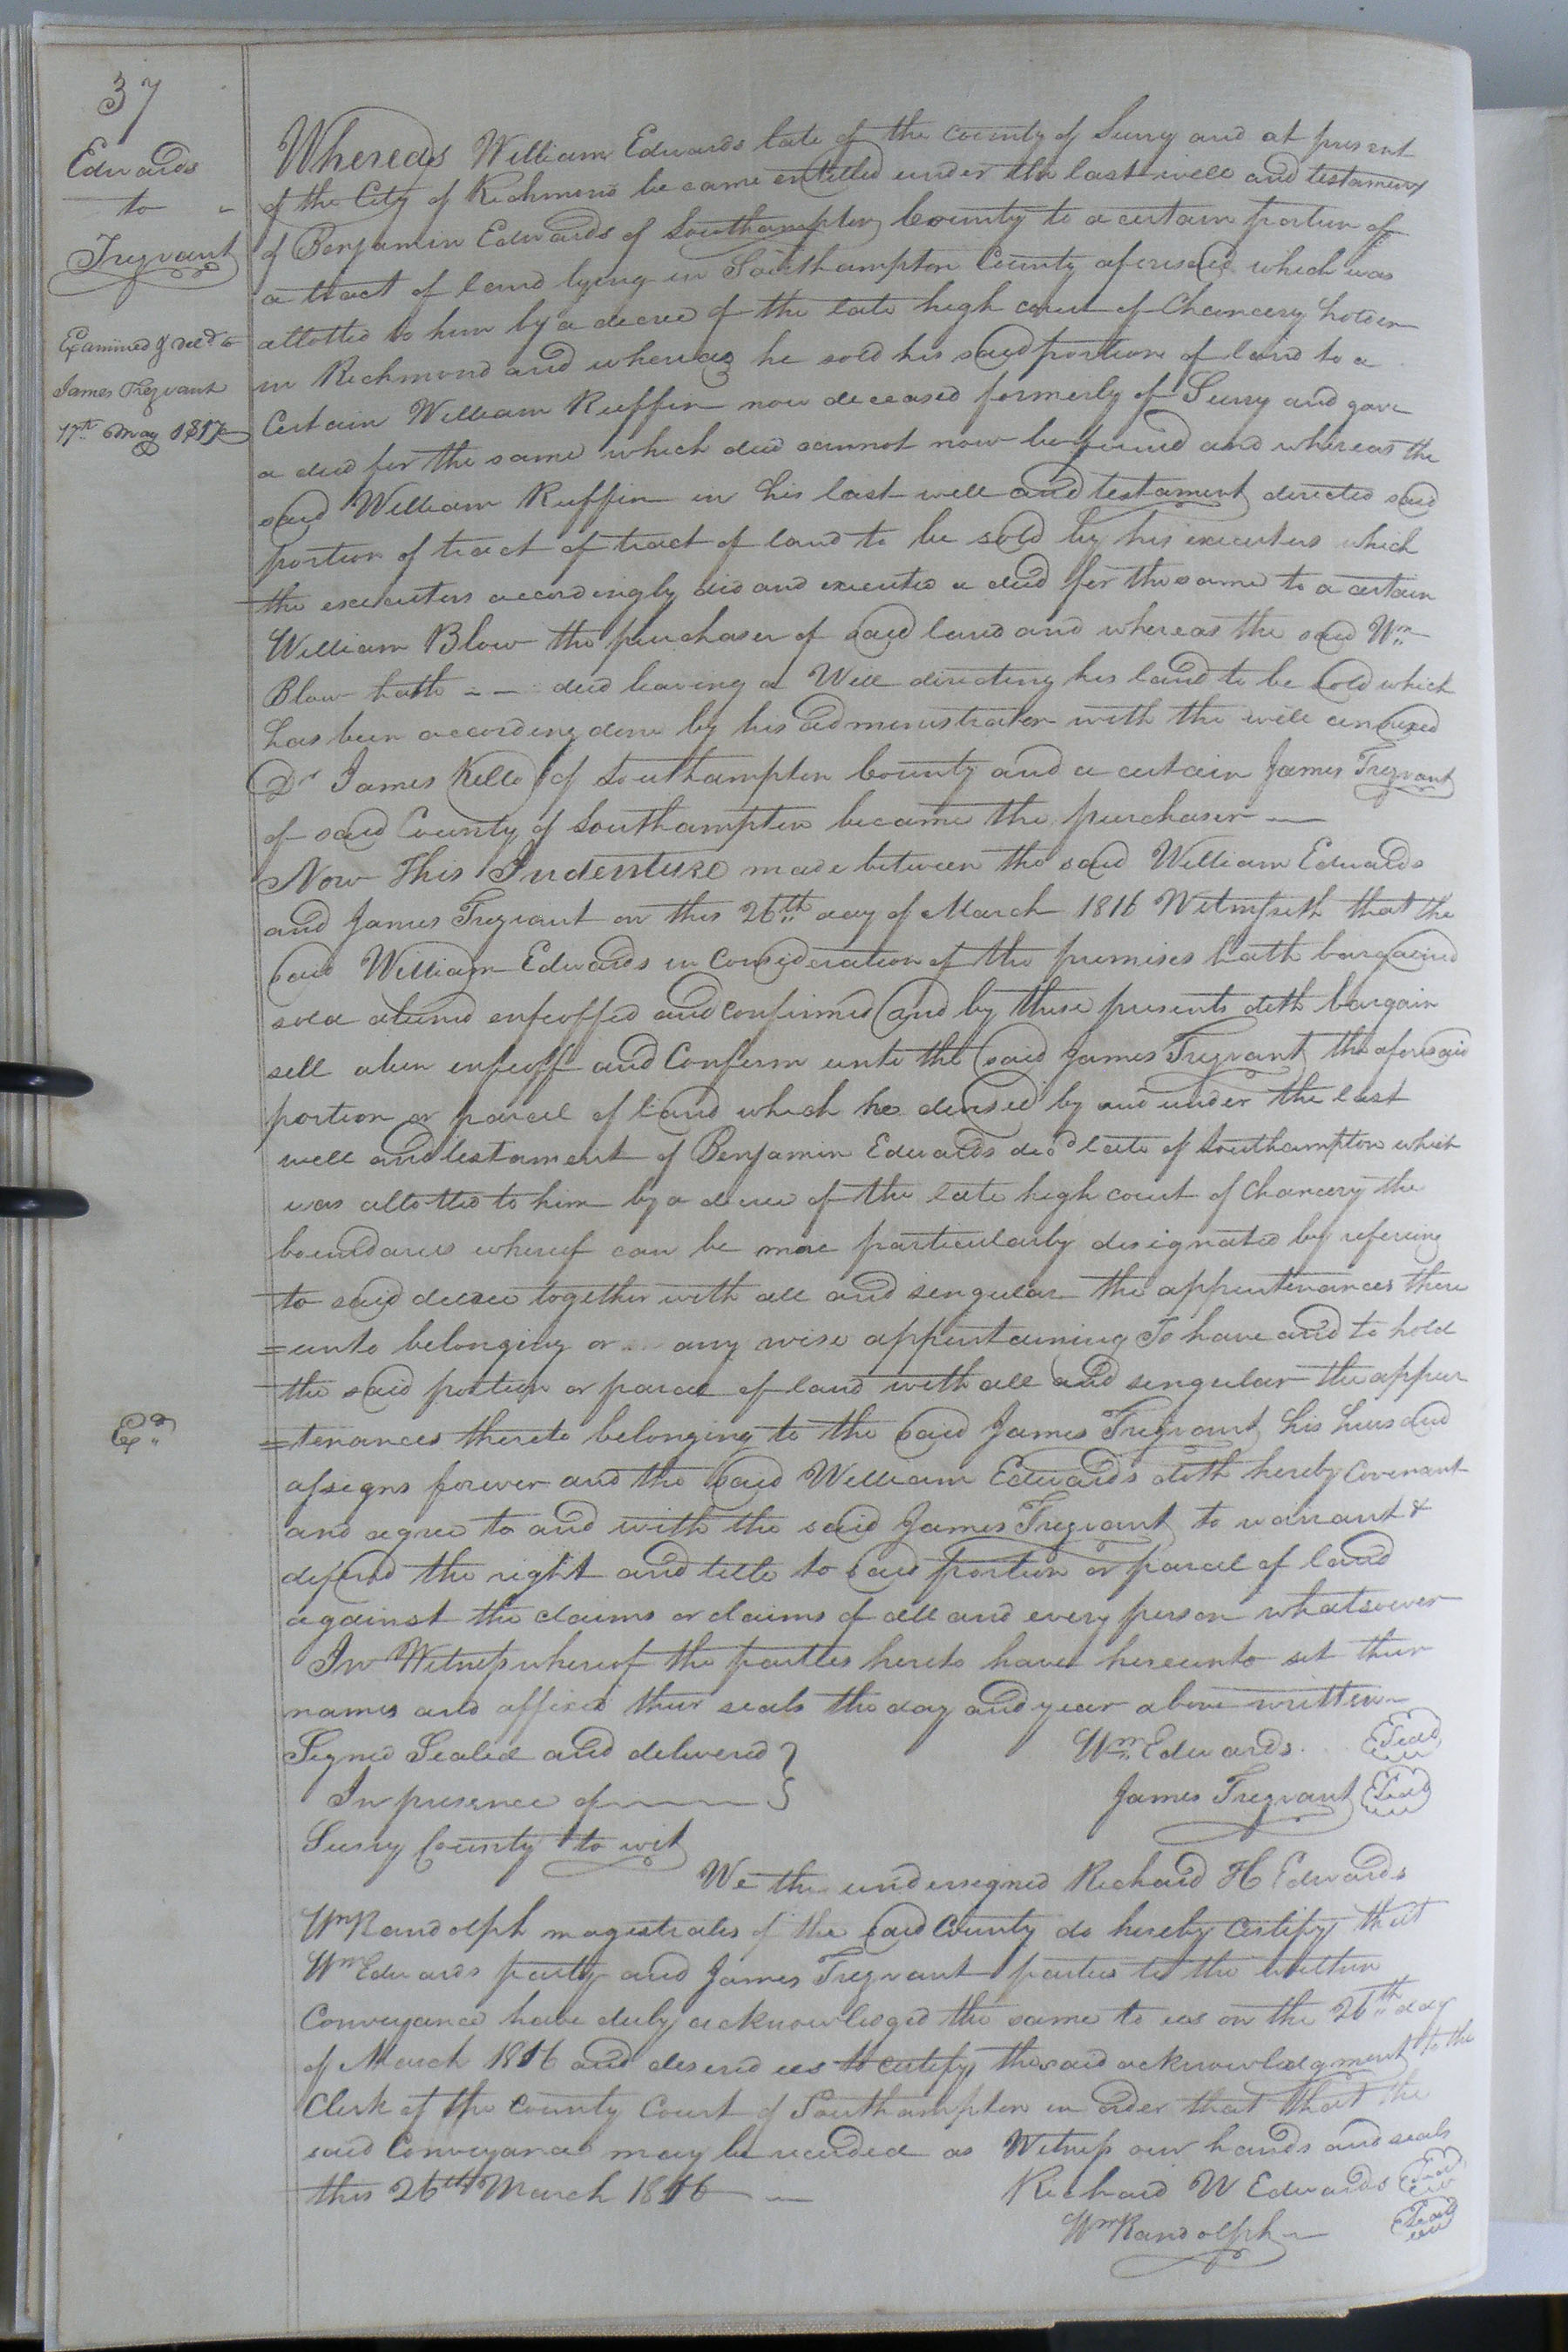 37
Edwards
to
Trezvant
Examined & deld to
James Trezvant
17th May 1817
Whereas William Edwards late of the county of Surry and at present
of the City of Richmond became entitled under the last will and testament
of Benjamin Edwards of Southampton County to a certain portion of
a tract of land lying in Southampton County aforesaid which was
allotted to him by a decree of the late high court of Chancery holden
in Richmond and whereas he sold his said portion of land to a
Certain William Ruffin now deceased formerly of Surry and gave
a deed for the same which deed cannot now be found and whereas the
said William Ruffin in his last will and testament directed said
portion of tract of tract of land to be sold by his executors which
the executors accordingly did and executed a deed for the same to a certain
William Blow the purchaser of said land and whereas the said Wm
Blow hath -- died leaving a Will directing his land to be sold which
has been according done by his administrator with the will annexed
Dr James Kello of Southampton County and a certain James Trezvant
of said County of Southampton became the purchaser —
Now This Indenture made between the said William Edwards
and James Trezvant on this 26th day of March 1816 Witnesseth that the
said William Edwards in Consideration of the premises hath bargained
sold aliened enfeoffed and confirmed and by these presents doth bargain
sell alien enfeoff and Confirm unto the said James Trezvant the aforesaid
portion or parcel of land which he devised by and under the last
will and testament of Benjamin Edwards decd late of Southampton which
was allotted to him by a decree of the late high court of Chancery the
boundaries whereof can be more particularly designated by refering
to said decree together with all and singular the appurtenances there
=unto belonging or any wise appurtaining To have and to hold
the said portion or parcel of land with all and singular the appur
=tenances thereto belonging to the said James Trezvant his heirs and
Ex
assigns forever and the said William Edwards doth hereby Covenant
and agree to and with the said James Trezvant to warrant &
defend the right and title to said portion or parcel of land
against the claims or claims of all and every person whatsoever
In Witness whereof the parties hereto have hereunto set their
names and affixed their seals the day and year above written
Signed Sealed and delivered } Wm Edwards. Seal
In presence of —— } James Trezvant Seal
Surry County to wit
We the undersigned Richard H Edwards
Wm Randolph magistrates of the said County do hereby Certify that
Wm Edwards party and James Trezvant parties to the written
Conveyance have duly acknowledged the same to us on the 26th day
of March 1816 and desired us to certify the said acknowledgment to the
Clerk of the County Court of Southampton in order that that the
said Conveyance may be recorded as Witness our hands and seals
this 26th March 1816 — Richard W Edwards Seal
Wm Randolph Seal